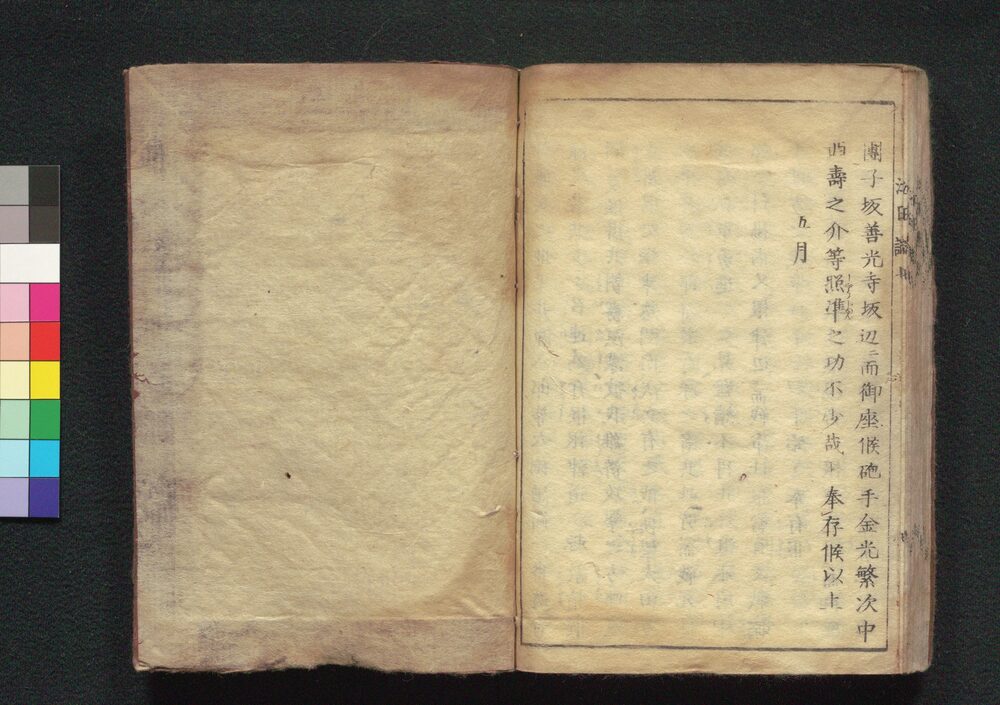 團子坂善光寺坂辺ニ而御座候砲手金光繁次中
西壽之介等照準之功不少哉ニ奉存候以上
五月